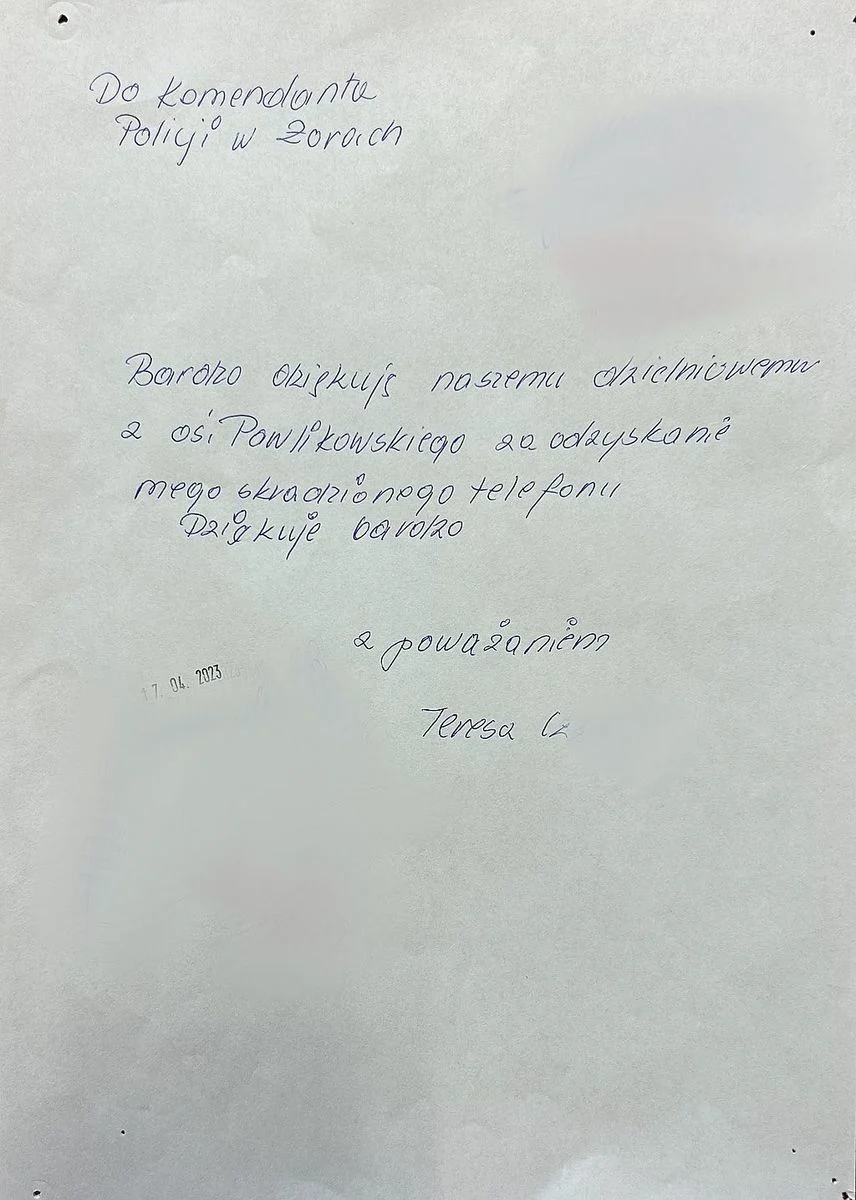 Do Komendanta
Policji w Żorach
Bardzo dziękuję naszemu dzielnicowemu
z oś. Pawlikowskiego za odzyskanie
mego skradzionego telefonu
Dziękuje bardzo
z poważaniem
17. 04. 2023
Teresa Cz